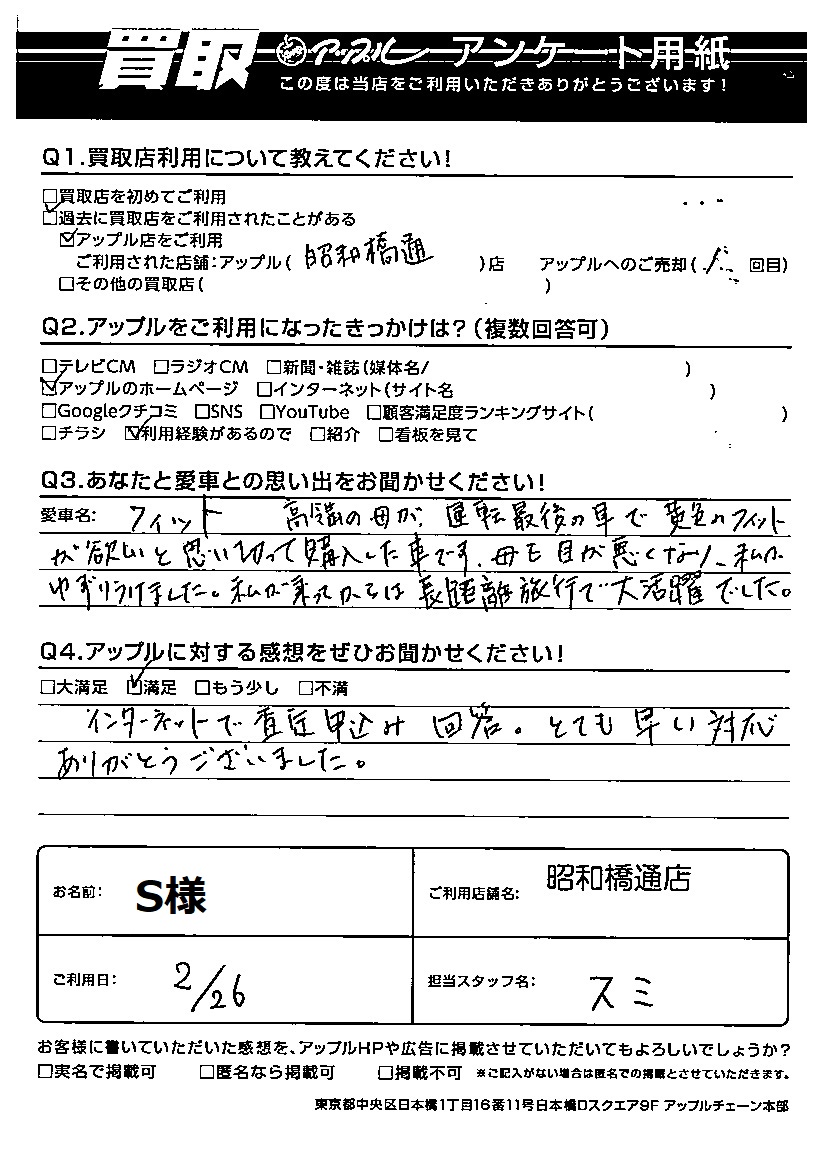 買取 アップル アンケート用紙
この度は当店をご利用いただきありがとうございます!
Q1.買取店利用について教えてください!
□買取店を初めてご利用
☑過去に買取店をご利用されたことがある
☑アップル店をご利用
ご利用された店舗:アップル( 昭和橋通 )店 アップルへのご売却( 回目)
□その他の買取店( )
Q2.アップルをご利用になったきっかけは?(複数回答可)
□テレビCM □ラジオCM □新聞・雑誌(媒体名/ )
☑アップルのホームページ □インターネット(サイト名 )
□Googleクチコミ □SNS □YouTube □顧客満足度ランキングサイト( )
□チラシ ☑利用経験があるので □紹介 □看板を見て
Q3.あなたと愛車との思い出をお聞かせください!
愛車名: フィット 高齢の母が、運転最後の車で黄色のフィット
が欲しいと思い切って購入した車です。母も目が悪くなり、私が
ゆずりうけました。私が乗ってからは長距離旅行で大活躍でした。
Q4.アップルに対する感想をぜひお聞かせください!
□大満足 ☑満足 □もう少し □不満
インターネットで査定申込み 回答。とても早い対応
ありがとうございました。
お名前: S様
ご利用店舗名: 昭和橋通店
ご利用日: 2/26
担当スタッフ名: スミ
お客様に書いていただいた感想を、アップルHPや広告に掲載させていただいてもよろしいでしょうか?
□実名で掲載可 □匿名なら掲載可 □掲載不可 ※ご記入がない場合は匿名での掲載とさせていただきます。
東京都中央区日本橋1丁目16番11号日本橋Dスクエア9F アップルチェーン本部